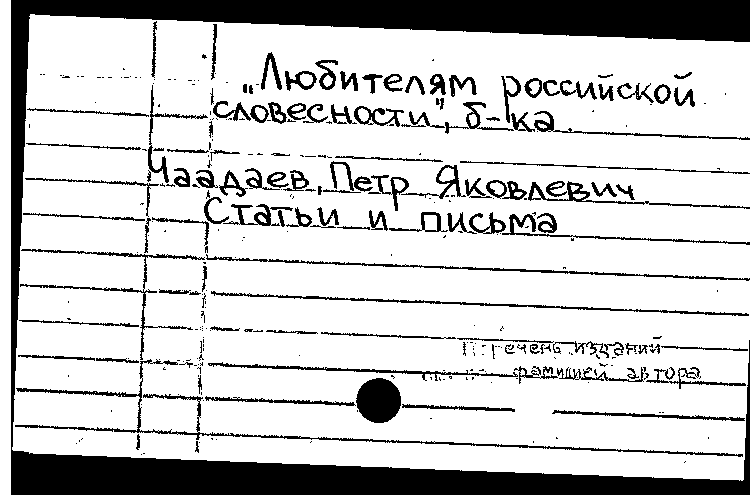 „Любителям российской
словесности", б-ка.
Чаадаев, Петр Яковлевич
Статьи и письма
Перечень изданий
фамилией автора